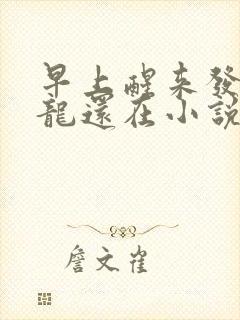 早上醒來發
龍還在小說
詹文雀